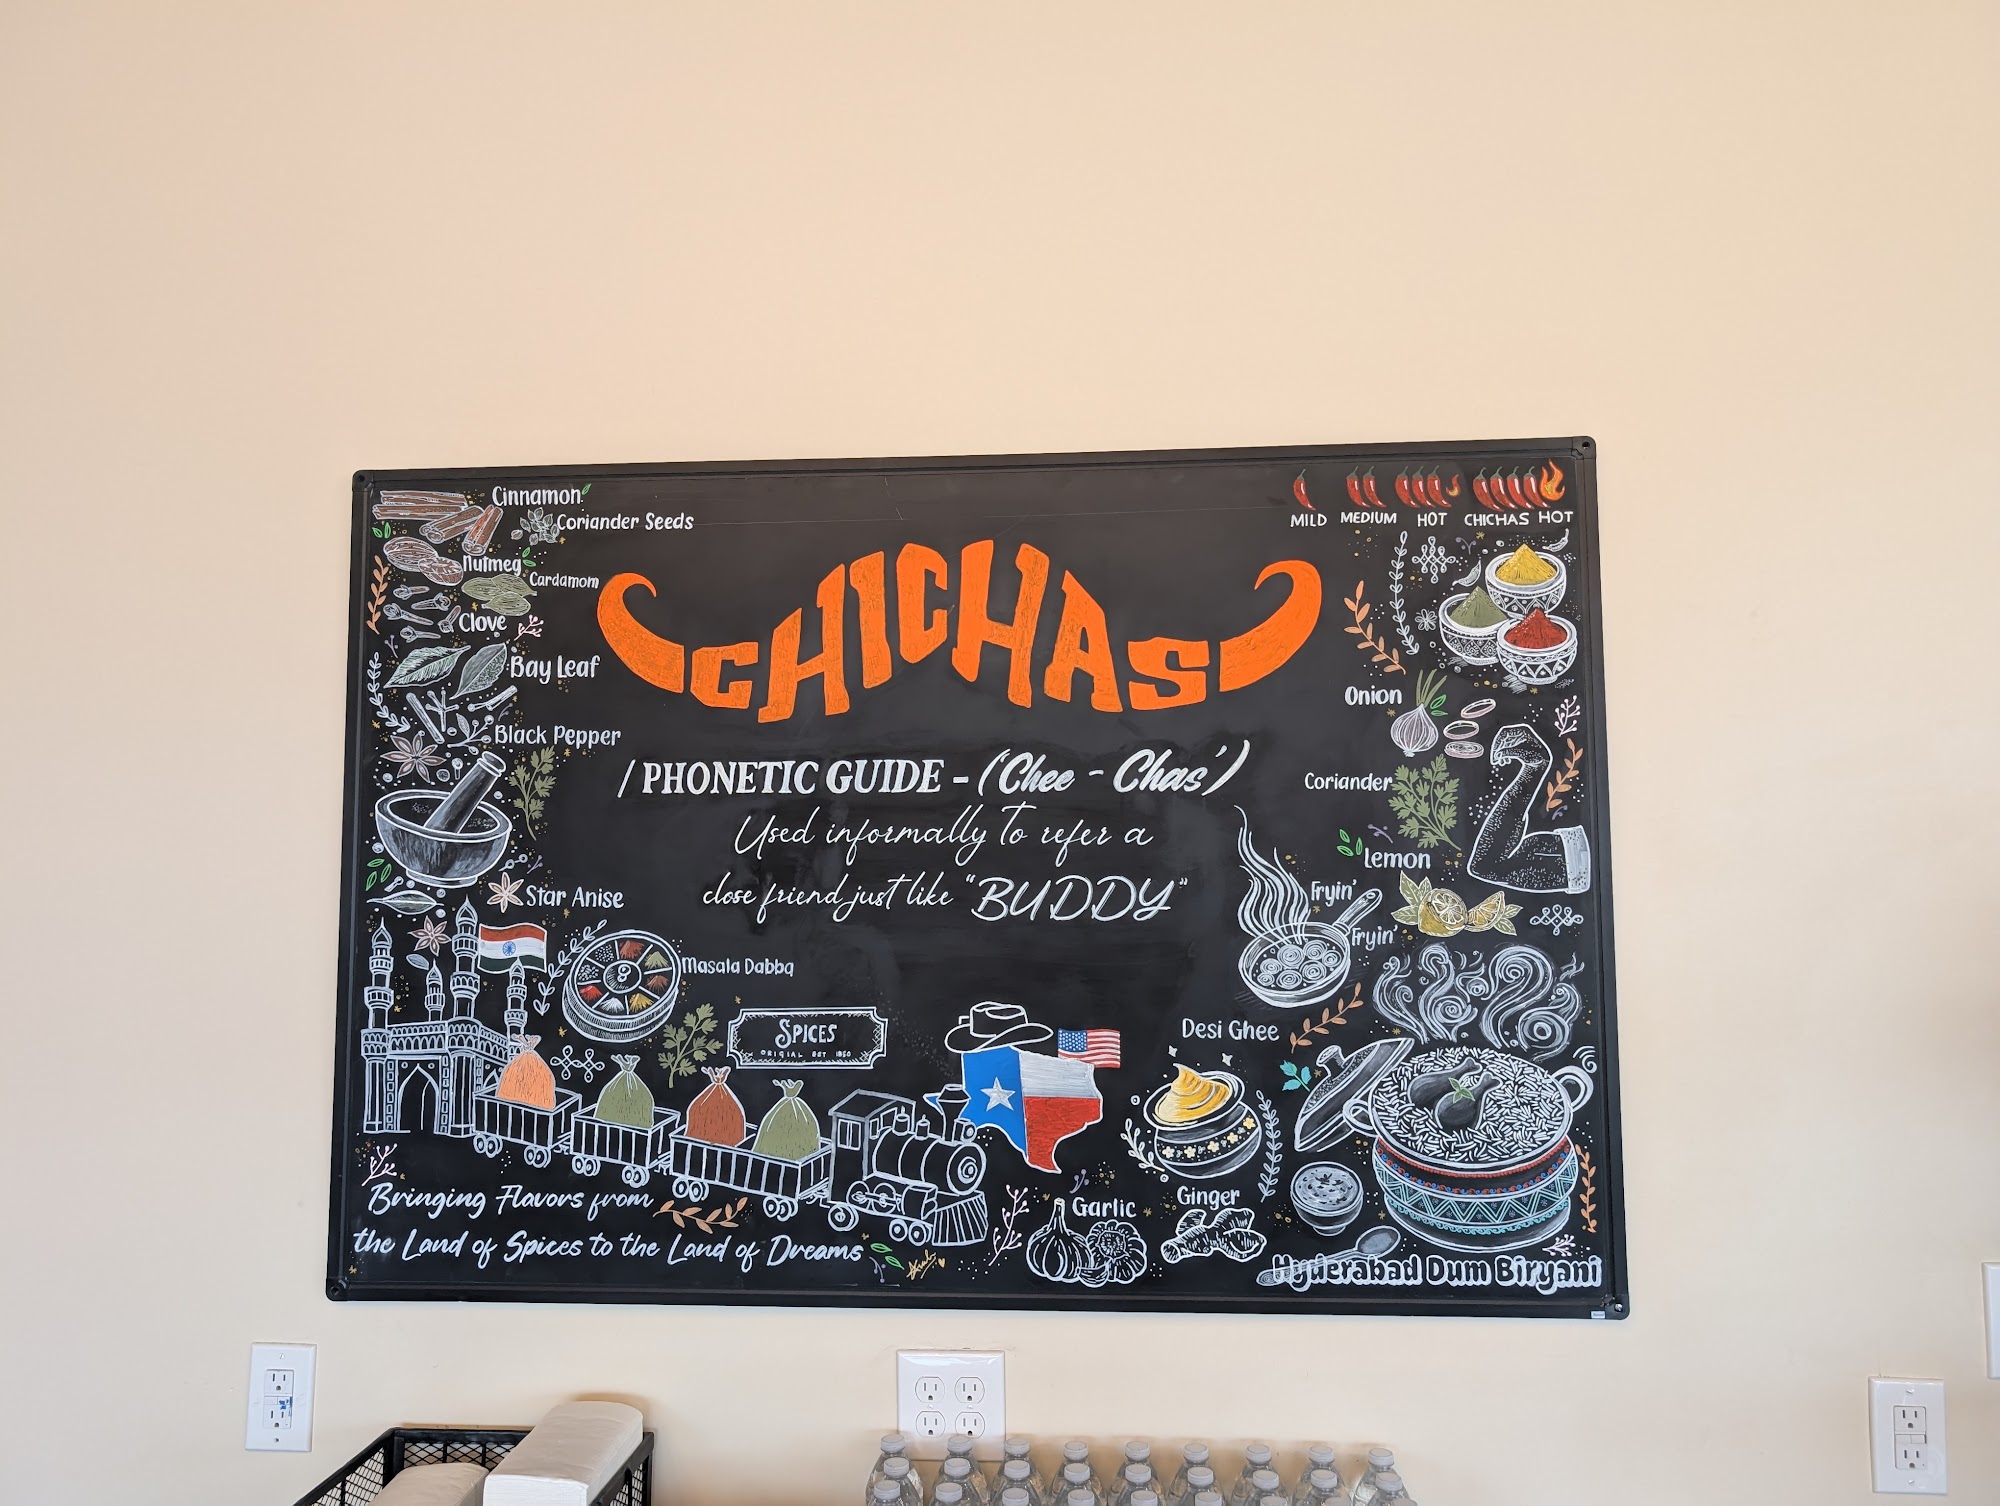 Cinnamon
Coriander Seeds
Nutmeg
Cardamom
Clove
Bay Leaf
Black Pepper
Star Anise
Masala Dabba
MILD MEDIUM HOT CHICHAS HOT
CHICHAS
/ PHONETIC GUIDE - ('Chee - Chas')
Used informally to refer a
close friend just like "BUDDY"
Onion
Coriander
Lemon
Fryin'
Fryin'
Desi Ghee
SPICES
ORIGIAL EST 1850
Garlic
Ginger
Bringing Flavors from
the Land of Spices to the Land of Dreams
Hyderabad Dum Biryani